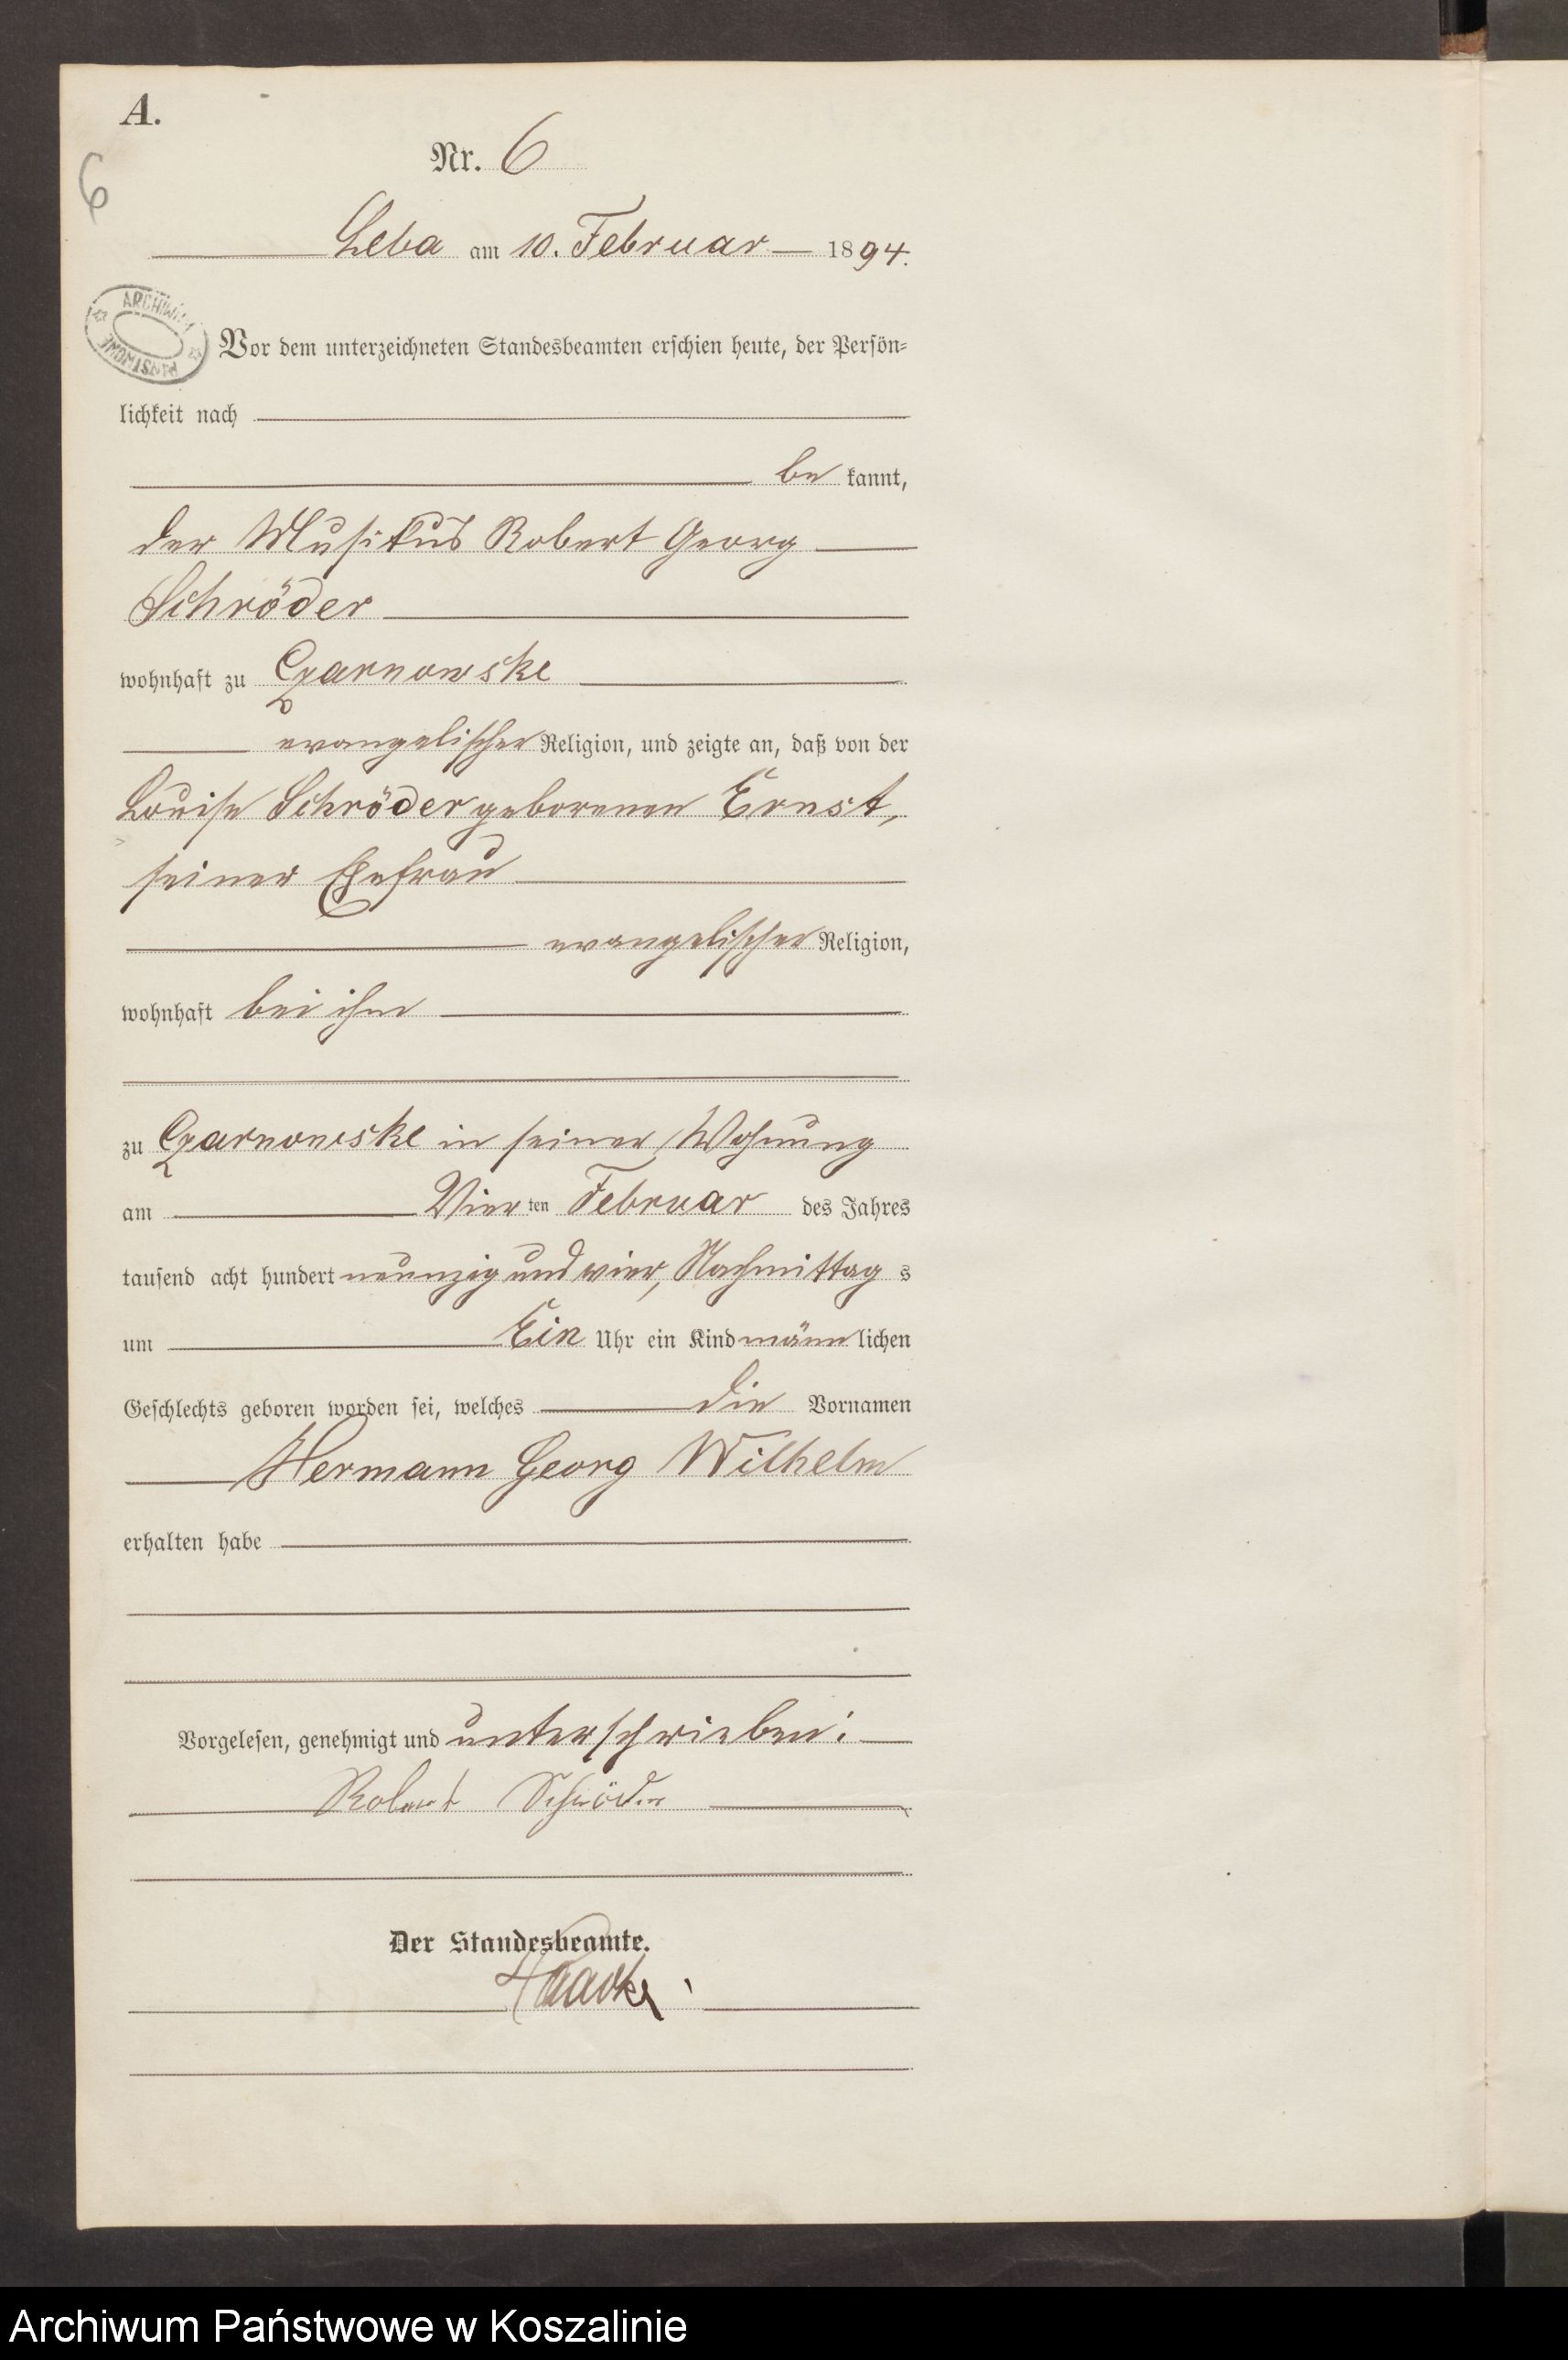 A.
Nr. 6
6
Leba am 10. Februar 1894.
ARCHIWUM PAŃSTWOWE
Vor dem unterzeichneten Standesbeamten erschien heute, der Persön-
lichkeit nach
be kannt,
der Musikus Robert Georg
Schröder
wohnhaft zu Czarnowske
evangelischer Religion, und zeigte an, daß von der
Louise Schröder geborenen Ernst,
seiner Ehefrau
evangelischer Religion,
wohnhaft bei ihm
zu Czarnowske in seiner Wohnung
am Vier ten Februar des Jahres
tausend acht hundert neunzig und vier, Nachmittag s
um Ein Uhr ein Kind männ lichen
Geschlechts geboren worden sei, welches die Vornamen
Hermann Georg Wilhelm
erhalten habe
Vorgelesen, genehmigt und unterschrieben:
Robert Schröder
Der Standesbeamte.
Archiwum Państwowe w Koszalinie